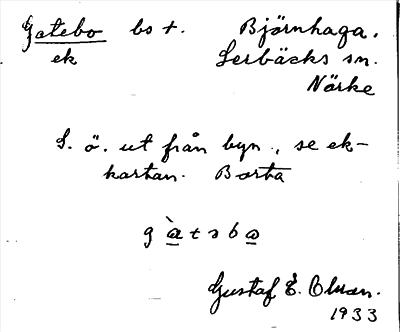 Gatebo bst. Björnhaga.
ek Lerbäcks sn.
Närke
S. ö. ut från byn, se ek-
kartan. Borta
g à t ə b ɷ
Gustaf E.
1933